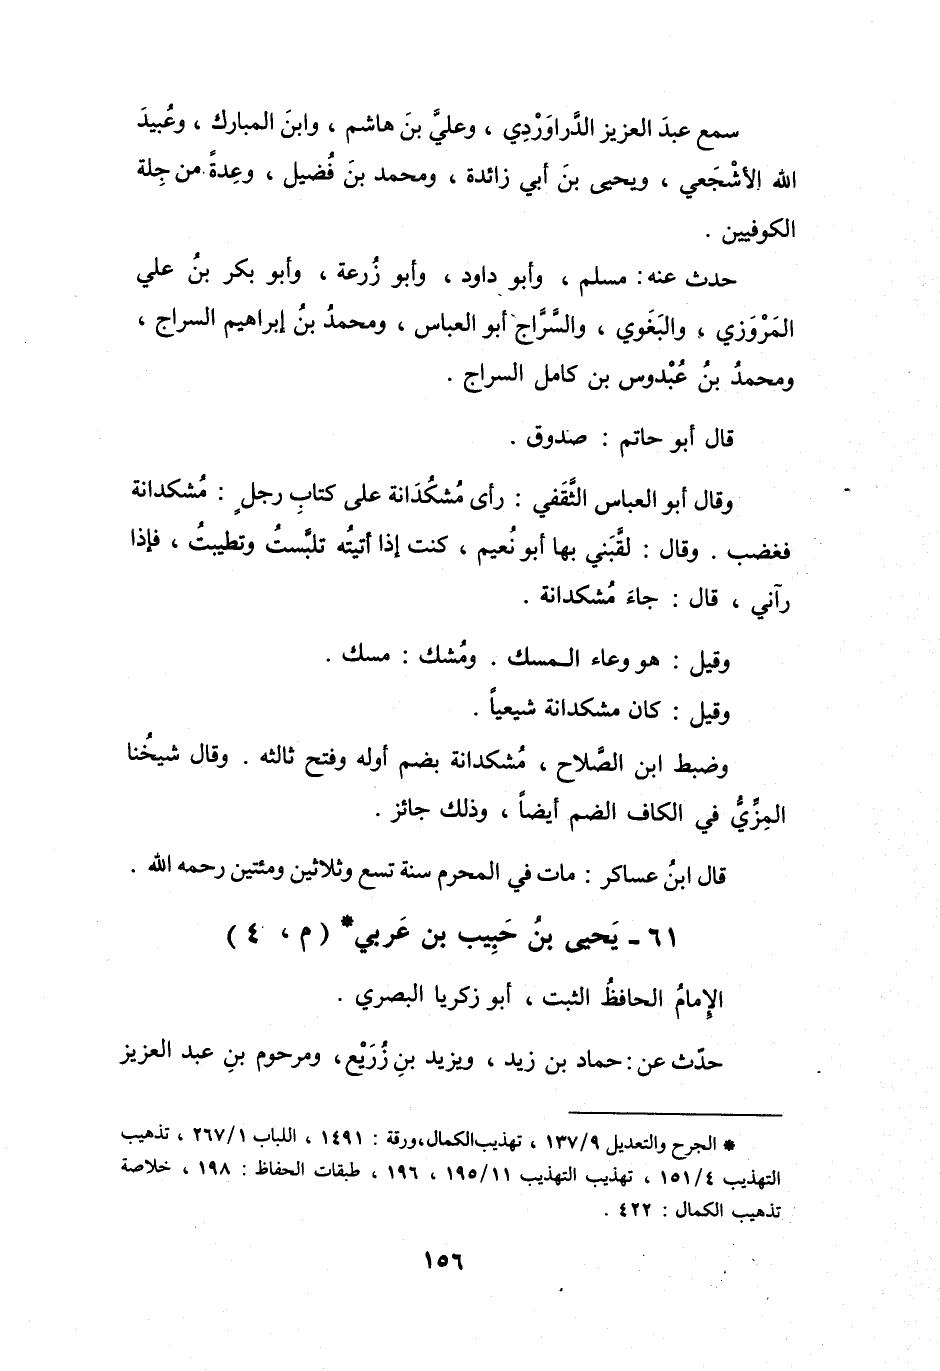 سمع عبدَ العزيز الدَّراوَرْدِي ، وعليَّ بنَ هاشم ، وابنَ المبارك ، وعُبيدَ
الله الأشْجَعي ، ويحيى بنَ أبي زائدة ، ومحمد بنَ فُضيل ، وعِدةً من جِلة
الكوفيين .
حدث عنه : مسلم ، وأبو داود ، وأبو زُرعة ، وأبو بكر بنُ علي
المَرْوَزي ، والبَغَوي ، والسَّرَّاج أبو العباس ، ومحمدُ بنُ إبراهيم السراج ،
ومحمدُ بنُ عُبْدوس بن كامل السراج .
قال أبو حاتم : صدوق .
وقال أبو العباس الثَّقَفي : رأى مُشكُدَانة على كتابِ رجلٍ : مُشكدانة
فغضب . وقال : لقَّبَني بها أبو نُعيم ، كنت إذا أتيتُه تلبَّستُ وتطيبتُ ، فإذا
رآني ، قال : جاءَ مُشكدانة .
وقيل : هو وعاء المسك . ومُشك : مسك .
وقيل : كان مشكدانة شيعياً .
وضبط ابن الصَّلاح ، مُشكدانة بضم أوله وفتح ثالثه . وقال شيخُنا
المِزِّيُّ في الكاف الضم أيضاً ، وذلك جائز .
قال ابنُ عساكر : مات في المحرم سنة تسع وثلاثين ومئتين رحمه الله .
٦١ - يَحيى بنُ حَبِيب بن عَربي* ( م ، ٤ )
الإِمامُ الحافظُ الثبت ، أبو زكريا البصري .
حدّث عن : حماد بن زيد ، ويزيد بنِ زُرَيْع ، ومرحوم بنِ عبد العزيز
* الجرح والتعديل ١٣٧/٩ ، تهذيب الكمال ، ورقة : ١٤٩١ ، اللباب ٢٦٧/١ ، تذهيب
التهذيب ١٥١/٤ ، تهذيب التهذيب ١٩٥/١١ ، ١٩٦ ، طبقات الحفاظ : ١٩٨ ، خلاصة
تذهيب الكمال : ٤٢٢ .
١٥٦